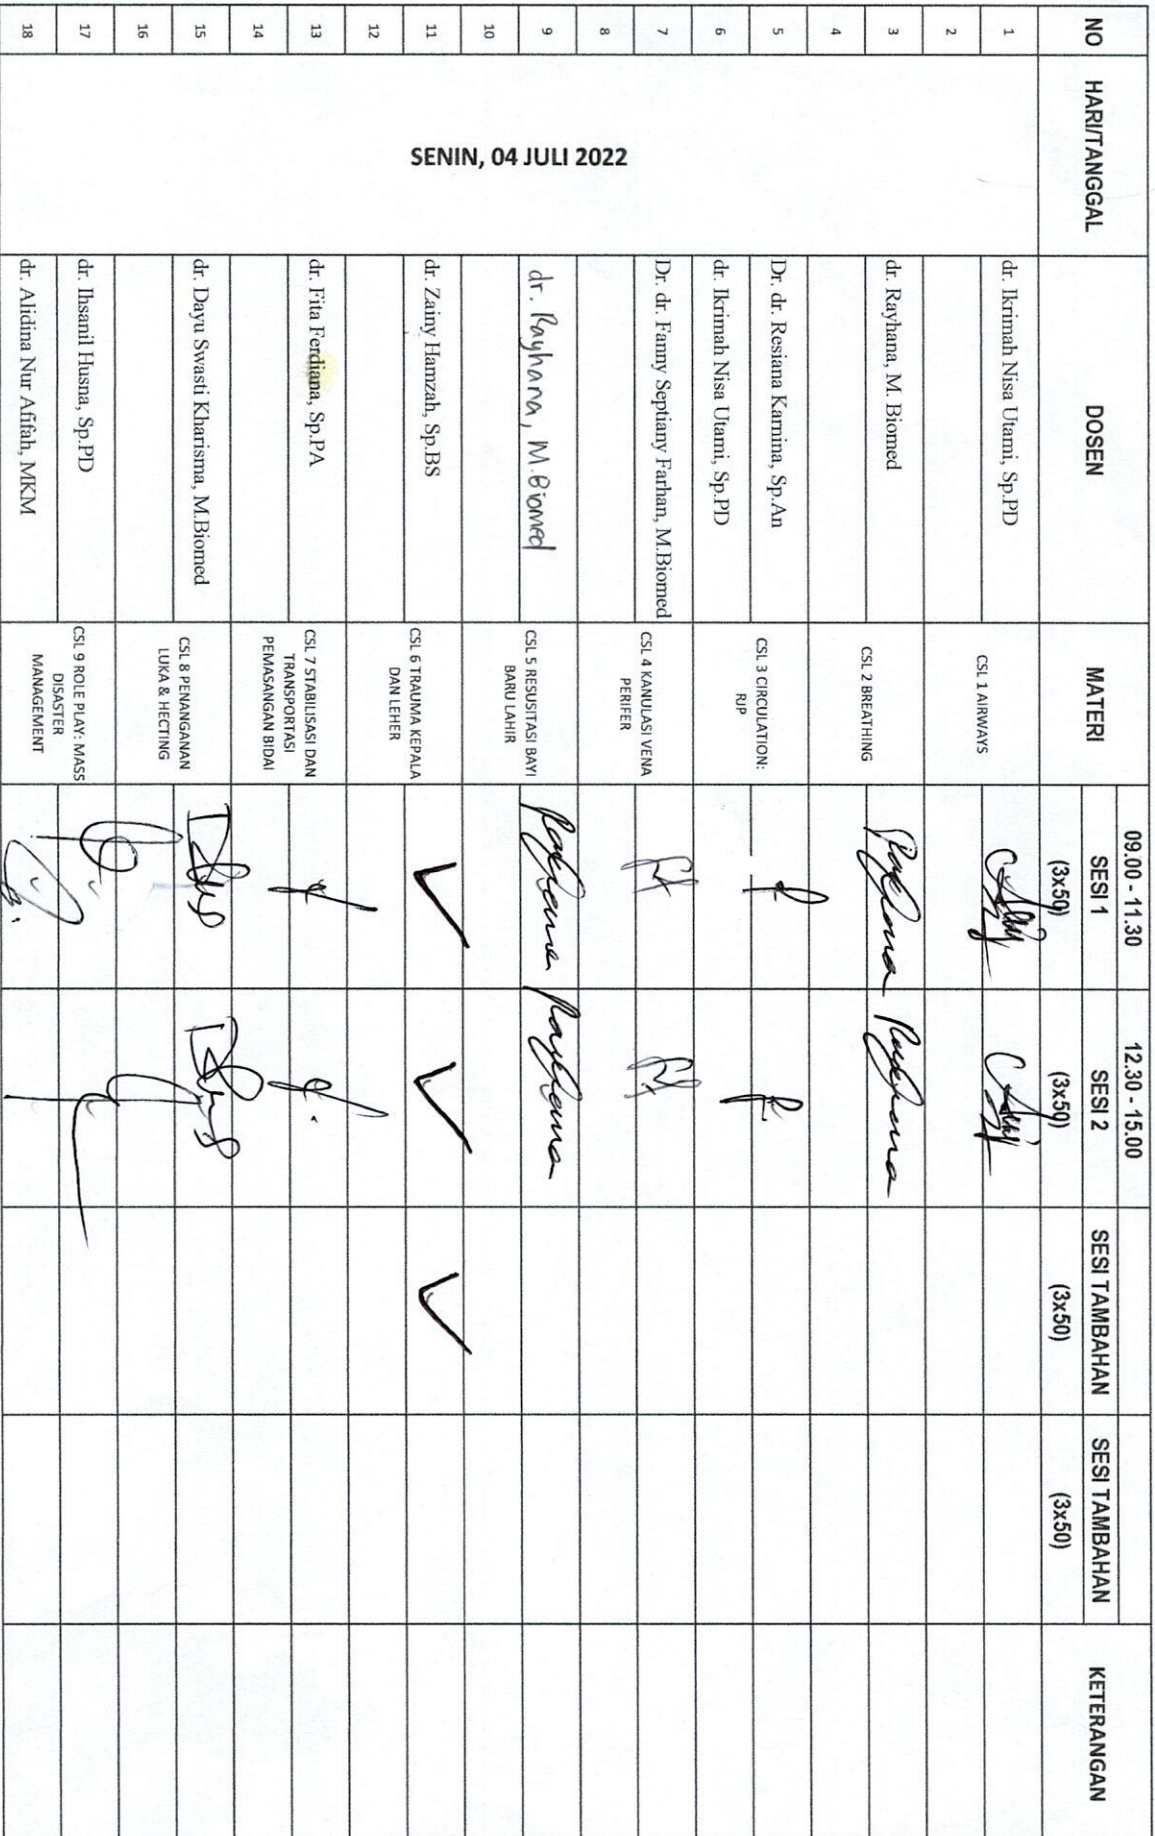 09.00 - 11.30 12.30 - 15.00
NO HARI/TANGGAL DOSEN MATERI SESI 1 SESI 2 SESI TAMBAHAN SESI TAMBAHAN KETERANGAN
(3x50) (3x50) (3x50) (3x50)
SENIN, 04 JULI 2022
1 dr. Ikrimah Nisa Utami, Sp.PD CSL 1 AIRWAYS
2
3 dr. Rayhana, M. Biomed CSL 2 BREATHING Rayhana Rayhana
4
5 Dr. dr. Resiana Karnina, Sp.An CSL 3 CIRCULATION:
RJP
6 dr. Ikrimah Nisa Utami, Sp.PD
7 Dr. dr. Fanny Septiany Farhan, M.Biomed CSL 4 KANULASI VENA
PERIFER
8
9 dr. Rayhana, M.Biomed CSL 5 RESUSITASI BAYI
BARU LAHIR Rayhana Rayhana
10
11 dr. Zainy Hamzah, Sp.BS CSL 6 TRAUMA KEPALA
DAN LEHER
12
13 dr. Fita Ferdiana, Sp.PA CSL 7 STABILISASI DAN
TRANSPORTASI
PEMASANGAN BIDAI
14
15 dr. Dayu Swasti Kharisma, M.Biomed CSL 8 PENANGANAN
LUKA & HECTING
16
17 dr. Ihsanil Husna, Sp.PD CSL 9 ROLE PLAY: MASS
DISASTER
MANAGEMENT
18 dr. Alidina Nur Afifah, MKM